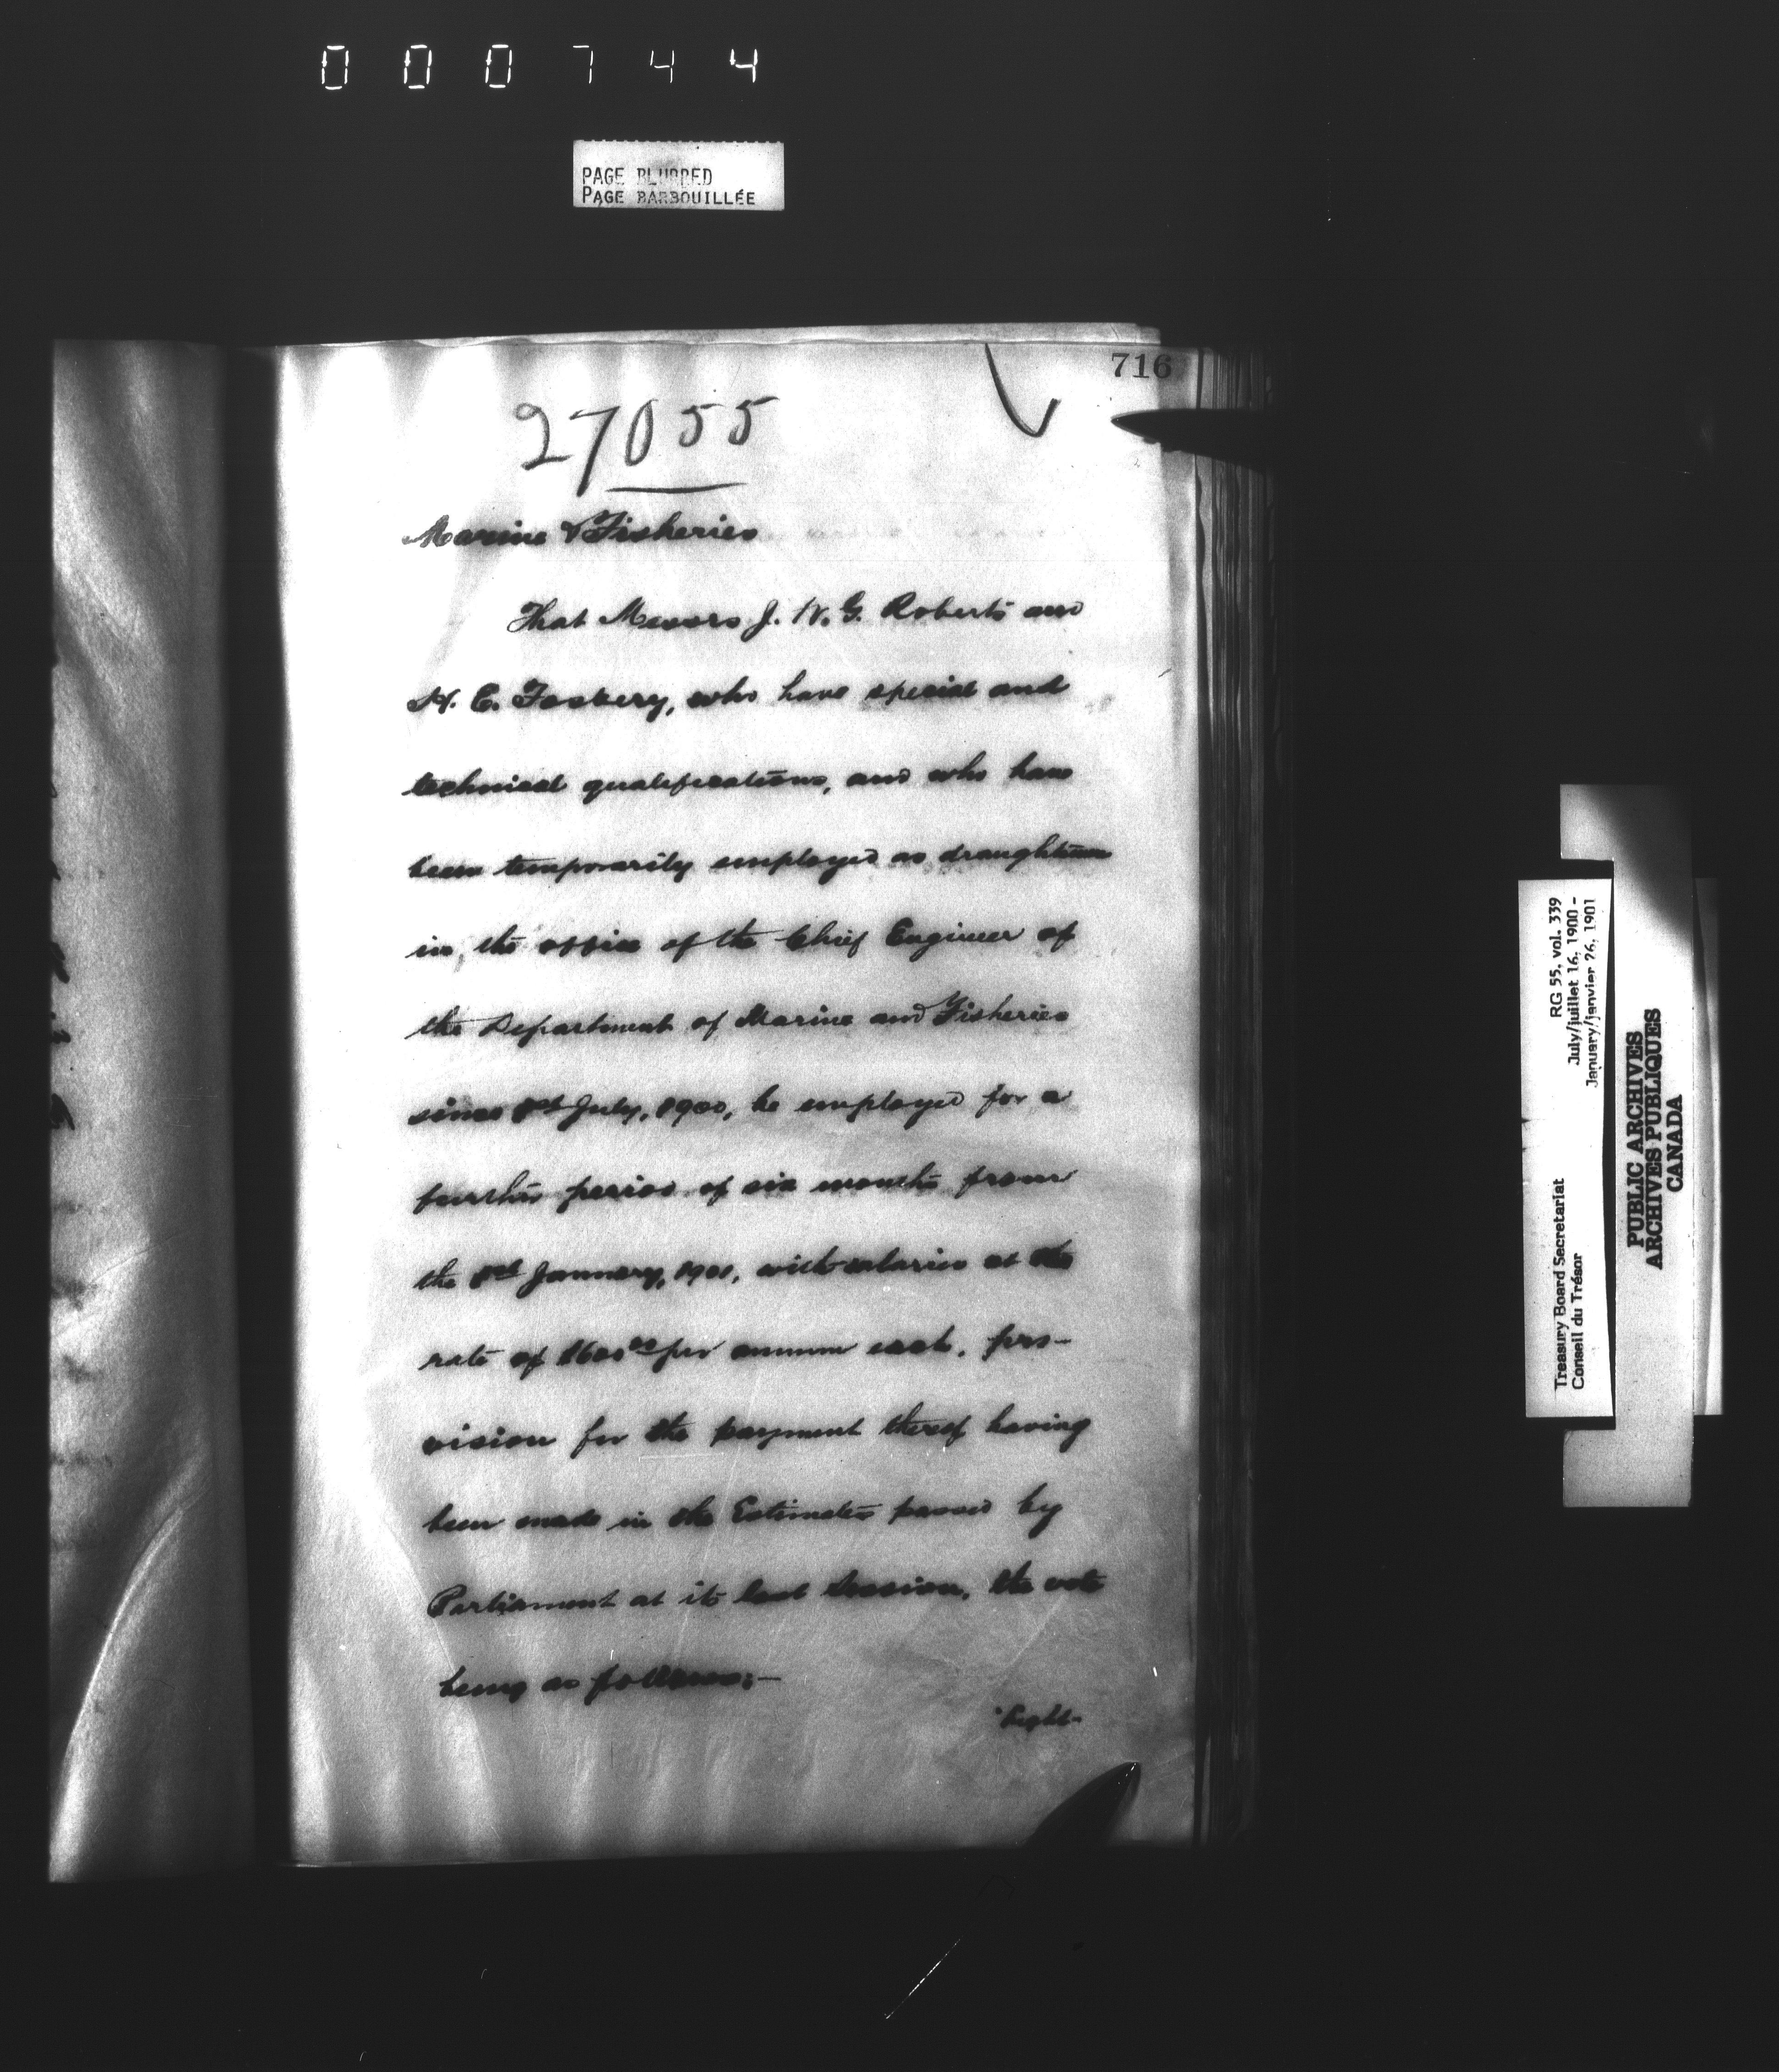 000744
PAGE BLURRED
PAGE BARBOUILLÉE
716
27055
Marine & Fisheries
That Messrs J. W. G. Roberts and
H. C. Foskery, who have special and
technical qualifications, and who have
been temporarily employed as draughtsmen
in the office of the Chief Engineer of
the Department of Marine and Fisheries
since 1st July, 1900, be employed for a
further period of six months from
the 1st January, 1901, with salaries at the
rate of $600.00 per annum each, pro-
vision for the payment thereof having
been made in the Estimates passed by
Parliament at its last Session, the vote
being as follows:—
"Light-
RG 55, vol. 339
July/juillet 16, 1900 -
January/janvier 26, 1901
Treasury Board Secretariat
Conseil du Trésor
PUBLIC ARCHIVES
ARCHIVES PUBLIQUES
CANADA